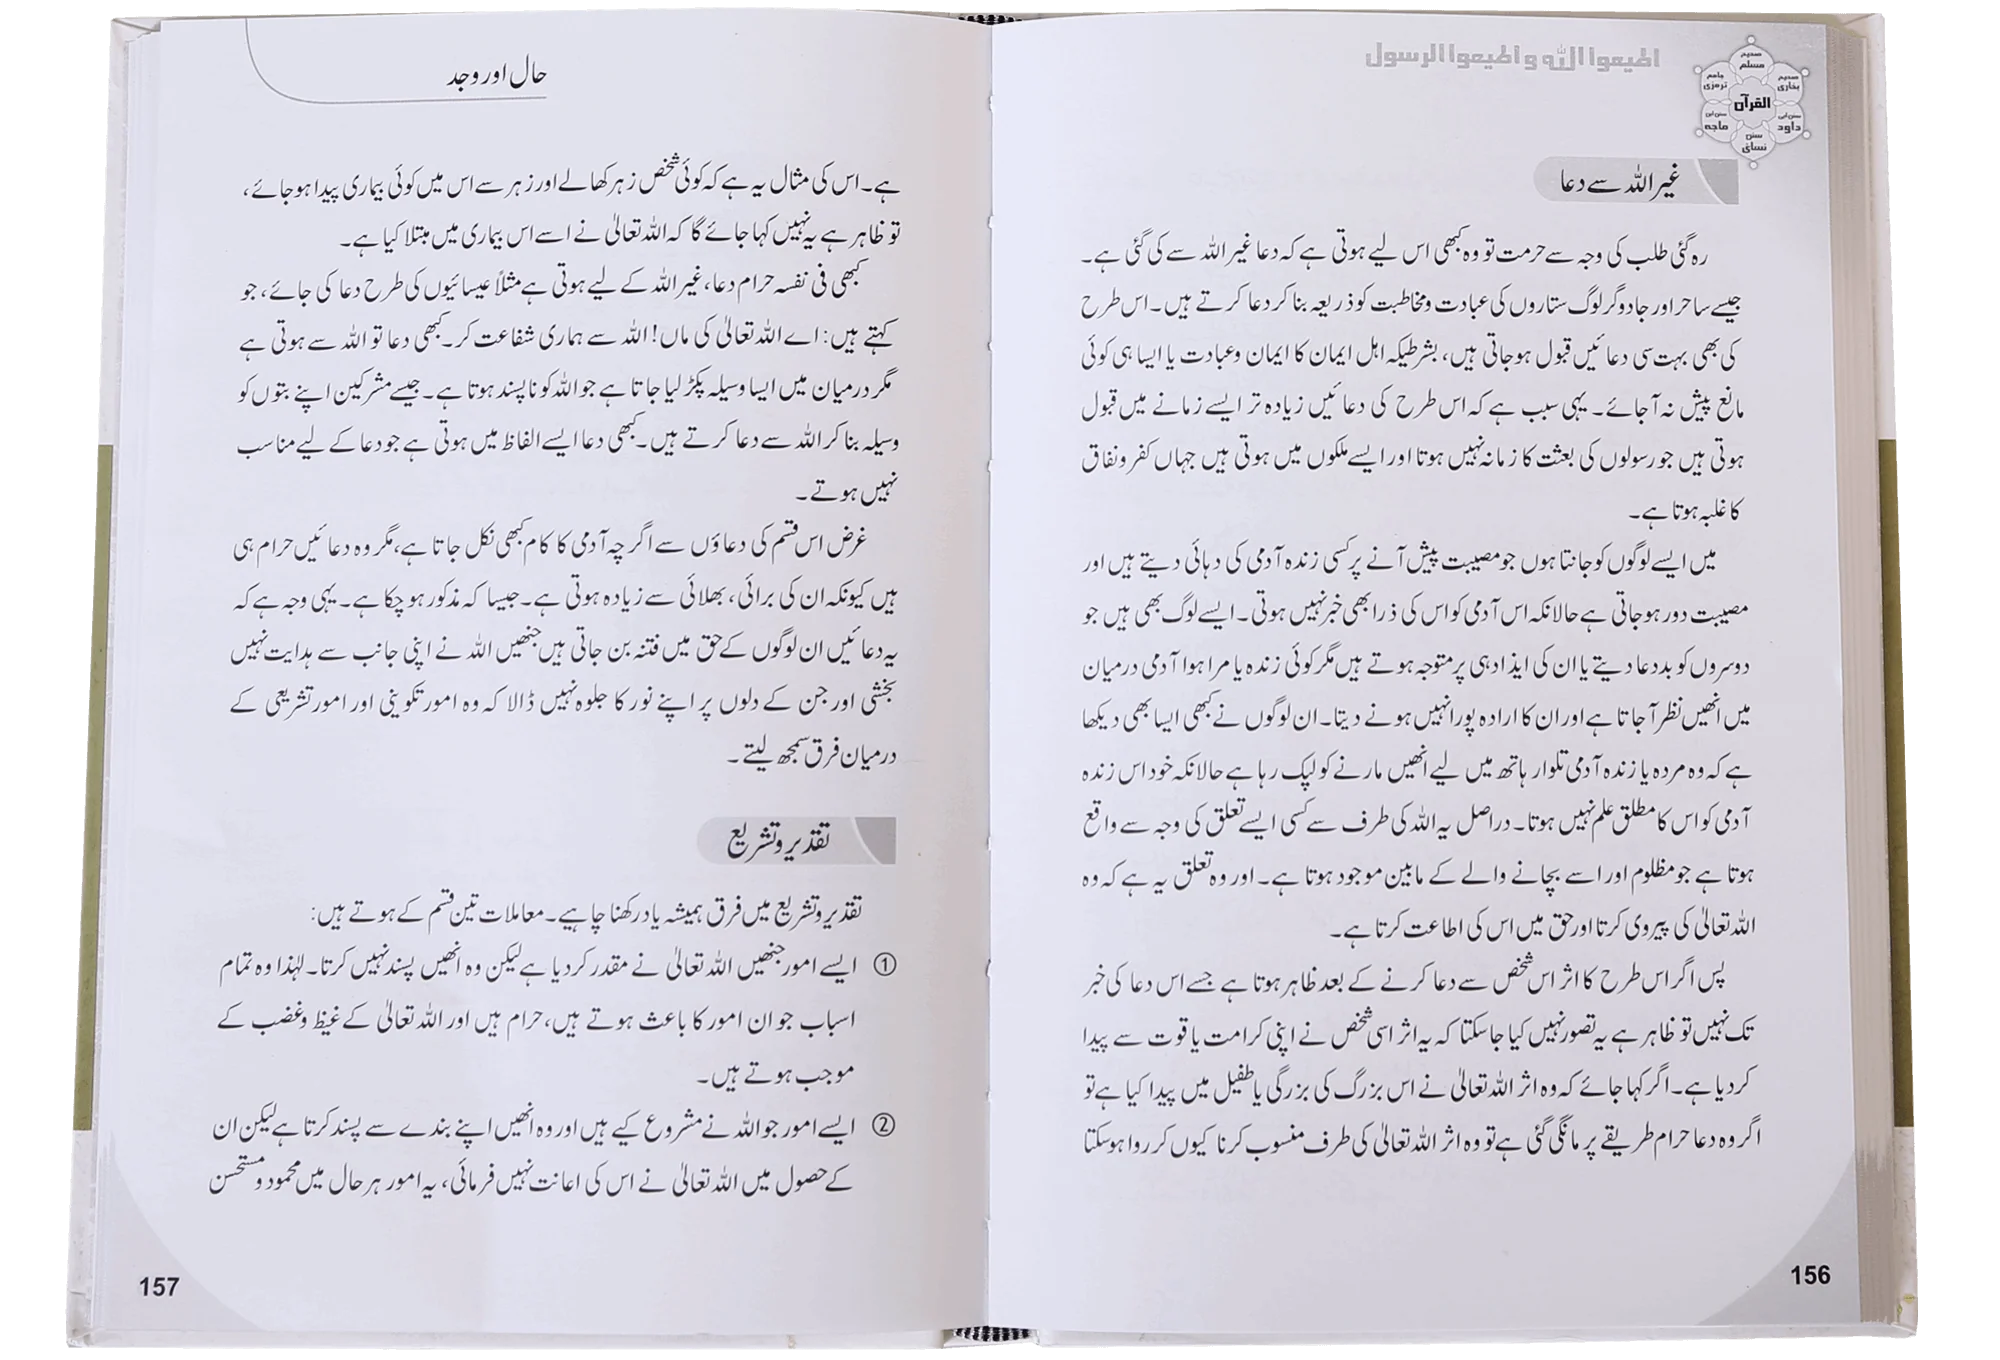 اطیعوا اللہ و اطیعوا الرسول
صحیح مسلم
صحیح بخاری
جامع ترمزی
القرآن
سنن ابی داود
سنن ابن ماجہ
سنن نسائی
غیر اللہ سے دعا
رہ گئی طلب کی وجہ سے حرمت تو وہ کبھی اس لیے ہوتی ہے کہ دعا غیر اللہ سے کی گئی ہے۔
جیسے ساحر اور جادوگر لوگ ستاروں کی عبادت و مخاطبت کو ذریعہ بنا کر دعا کرتے ہیں۔ اس طرح
کی بھی بہت سی دعائیں قبول ہوجاتی ہیں، بشرطیکہ اہل ایمان کا ایمان وعبادت یا ایسا ہی کوئی
مانع پیش نہ آ جائے۔ یہی سبب ہے کہ اس طرح کی دعائیں زیادہ تر ایسے زمانے میں قبول
ہوتی ہیں جو رسولوں کی بعثت کا زمانہ نہیں ہوتا اور ایسے ملکوں میں ہوتی ہیں جہاں کفر و نفاق
کا غلبہ ہوتا ہے۔
میں ایسے لوگوں کو جانتا ہوں جو مصیبت پیش آنے پر کسی زندہ آدمی کی دہائی دیتے ہیں اور
مصیبت دور ہو جاتی ہے حالانکہ اس آدمی کو اس کی ذرا بھی خبر نہیں ہوتی۔ ایسے لوگ بھی ہیں جو
دوسروں کو بددعا دیتے یا ان کی ایذا دہی پر متوجہ ہوتے ہیں مگر کوئی زندہ یا مرا ہوا آدمی درمیان
میں انھیں نظر آ جاتا ہے اور ان کا ارادہ پورا نہیں ہونے دیتا۔ ان لوگوں نے کبھی ایسا بھی دیکھا
ہے کہ وہ مردہ یا زندہ آدمی تلوار ہاتھ میں لیے انھیں مارنے کو لپک رہا ہے حالانکہ خود اس زندہ
آدمی کو اس کا مطلق علم نہیں ہوتا۔ دراصل یہ اللہ کی طرف سے کسی ایسے تعلق کی وجہ سے واقع
ہوتا ہے جو مظلوم اور اسے بچانے والے کے مابین موجود ہوتا ہے۔ اور وہ تعلق یہ ہے کہ وہ
اللہ تعالیٰ کی پیروی کرتا اور حق میں اس کی اطاعت کرتا ہے۔
پس اگر اس طرح کا اثر اس شخص سے دعا کرنے کے بعد ظاہر ہوتا ہے جسے اس دعا کی خبر
تک نہیں تو ظاہر ہے یہ تصور نہیں کیا جا سکتا کہ یہ اثر اسی شخص نے اپنی کرامت یا قوت سے پیدا
کر دیا ہے۔ اگر کہا جائے کہ وہ اثر اللہ تعالیٰ نے اس بزرگ کی بزرگی یا طفیل میں پیدا کیا ہے تو
اگر وہ دعا حرام طریقے پر مانگی گئی ہے تو وہ اثر اللہ تعالیٰ کی طرف منسوب کرنا کیوں کر روا ہو سکتا
156
حال اور وجد
ہے۔ اس کی مثال یہ ہے کہ کوئی شخص زہر کھا لے اور زہر سے اس میں کوئی بیماری پیدا ہو جائے،
تو ظاہر ہے یہ نہیں کہا جائے گا کہ اللہ تعالیٰ نے اسے اس بیماری میں مبتلا کیا ہے۔
کبھی فی نفسہ حرام دعا، غیر اللہ کے لیے ہوتی ہے مثلاً عیسائیوں کی طرح دعا کی جائے، جو
کہتے ہیں: اے اللہ تعالیٰ کی ماں! اللہ سے ہماری شفاعت کر۔ کبھی دعا تو اللہ سے ہوتی ہے
مگر درمیان میں ایسا وسیلہ پکڑ لیا جاتا ہے جو اللہ کو ناپسند ہوتا ہے۔ جیسے مشرکین اپنے بتوں کو
وسیلہ بنا کر اللہ سے دعا کرتے ہیں۔ کبھی دعا ایسے الفاظ میں ہوتی ہے جو دعا کے لیے مناسب
نہیں ہوتے۔
غرض اس قسم کی دعاؤں سے اگر چہ آدمی کا کام بھی نکل جاتا ہے، مگر وہ دعائیں حرام ہی
ہیں کیونکہ ان کی برائی، بھلائی سے زیادہ ہوتی ہے۔ جیسا کہ مذکور ہو چکا ہے۔ یہی وجہ ہے کہ
یہ دعائیں ان لوگوں کے حق میں فتنہ بن جاتی ہیں جنھیں اللہ نے اپنی جانب سے ہدایت نہیں
بخشی اور جن کے دلوں پر اپنے نور کا جلوہ نہیں ڈالا کہ وہ امور تکوینی اور امور تشریعی کے
درمیان فرق سمجھ لیتے۔
تقدیر و تشریع
تقدیر و تشریع میں فرق ہمیشہ یاد رکھنا چاہیے۔ معاملات تین قسم کے ہوتے ہیں:
① ایسے امور جنھیں اللہ تعالیٰ نے مقدر کر دیا ہے لیکن وہ انھیں پسند نہیں کرتا۔ لہٰذا وہ تمام
اسباب جو ان امور کا باعث ہوتے ہیں، حرام ہیں اور اللہ تعالیٰ کے غیظ و غضب کے
موجب ہوتے ہیں۔
② ایسے امور جو اللہ نے مشروع کیے ہیں اور وہ انھیں اپنے بندے سے پسند کرتا ہے لیکن ان
کے حصول میں اللہ تعالیٰ نے اس کی اعانت نہیں فرمائی، یہ امور ہر حال میں محمود و مستحسن
157